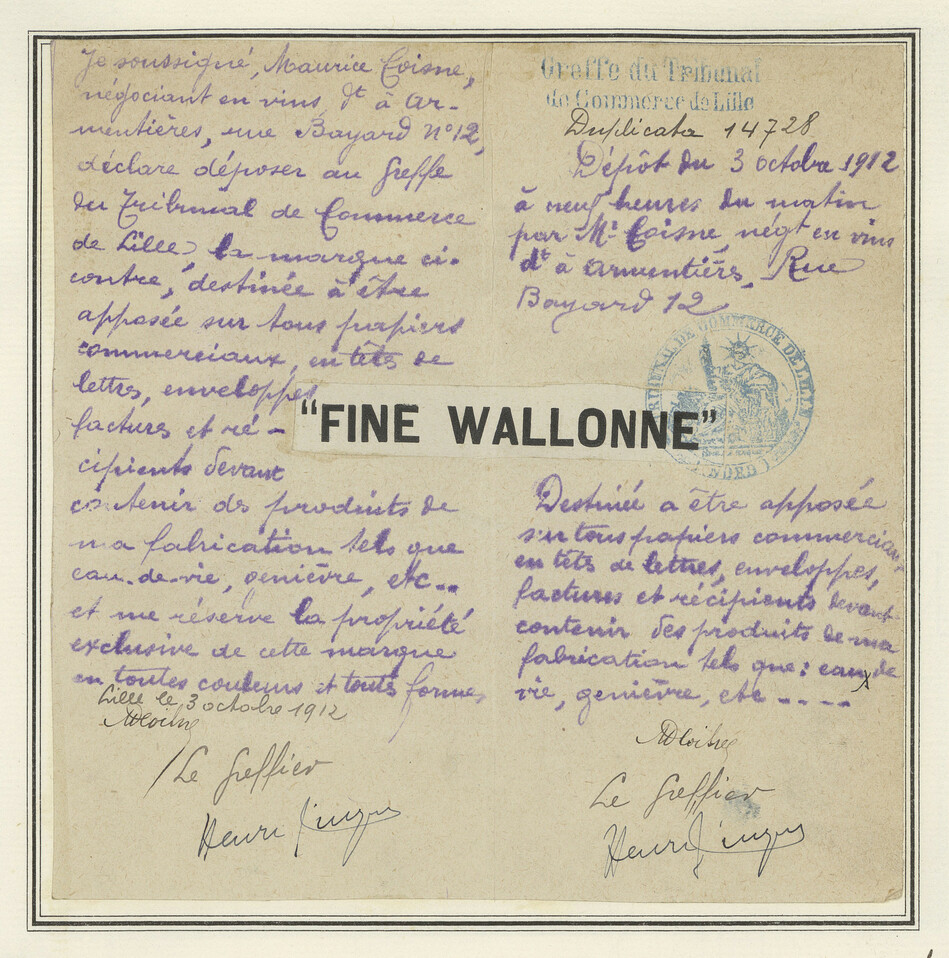 Je soussigné, Maurice Coisne,
négociant en vins, dt à Ar-
mentières, rue Bayard N° 12,
déclare déposer au Greffe
du Tribunal de Commerce
de Lille, la marque ci-
contre, destinée à être
apposée sur tous papiers
commerciaux, en têts de
lettres, enveloppes
factures et ré-
cipients devant
contenir des produits de
ma fabrication tels que
eau-de-vie, genièvre, etc...
et me réserve la propriété
exclusive de cette marque
en toutes couleurs et toutes formes
Lille le 3 octobre 1912
Le Greffier
Henri
"FINE WALLONNE"
Greffe du Tribunal
de Commerce de Lille
Duplicata 14728
Dépôt du 3 octobre 1912
à neuf heures du matin
par Mr Coisne, négt en vins
dt à Armentières, Rue
Bayard 12
TRIBUNAL DE COMMERCE DE LILLE
Destinée a être apposée
sur tous papiers commerciaux,
en têts de lettres, enveloppes,
factures et récipients devant
contenir des produits de ma
fabrication tels que: eaux de
vie, genièvre, etc.....
Le Greffier
Henri